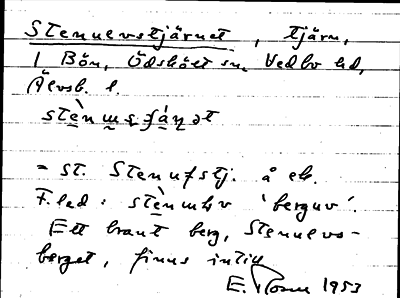 Stenuevstjärnet, tjärn,
i Bön, Ödskölt sn, Vedbo hd,
Älvsb. l.
= st. Stenufstj. å ek.
F. led: 'berguv'.
Ett brant berg, Stenuevs-
berget, finns intill
E. 1953